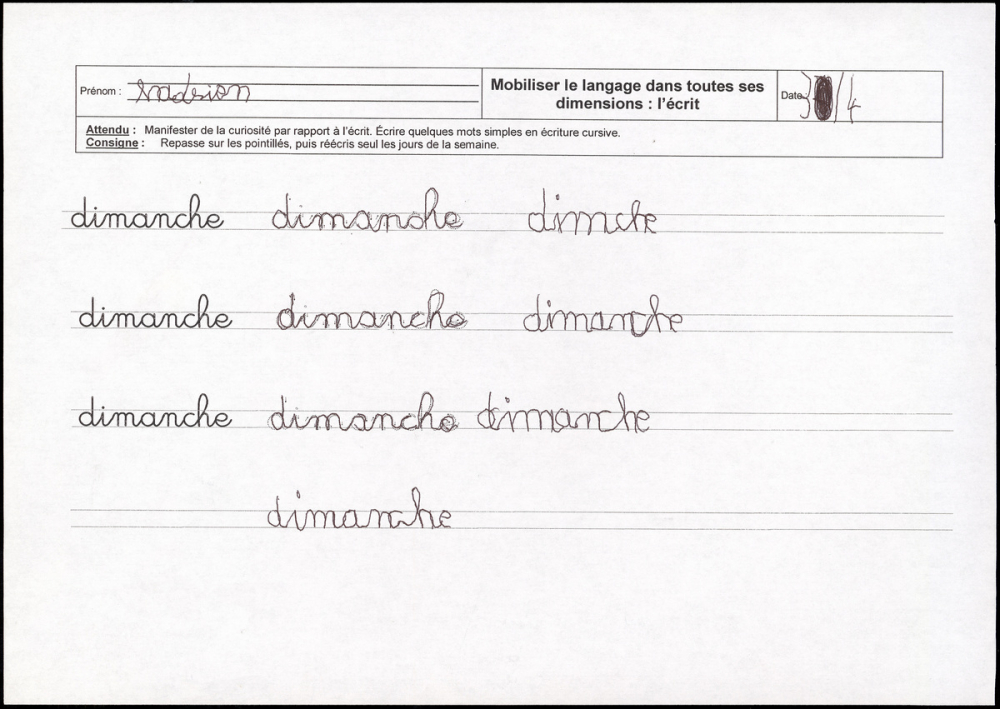 Prénom :
Mobiliser le langage dans toutes ses
dimensions : l'écrit
Date 3 /4
Attendu : Manifester de la curiosité par rapport à l'écrit. Écrire quelques mots simples en écriture cursive.
Consigne : Repasse sur les pointillés, puis réécris seul les jours de la semaine.
dimanche dimanche dimche
dimanche dimanche dimanche
dimanche dimanche dimanche
dimanche